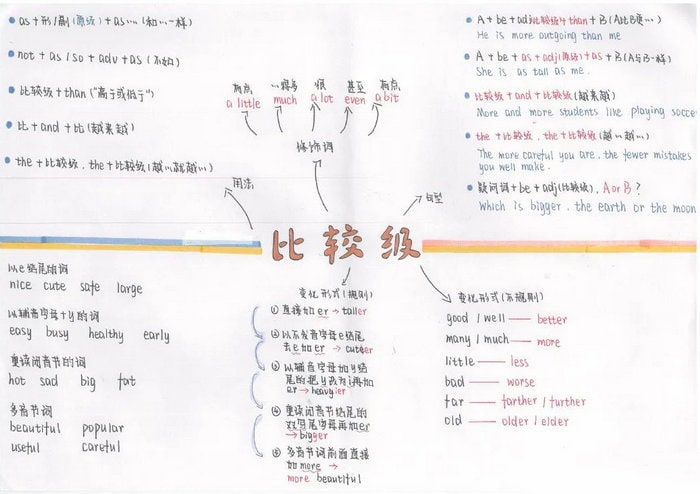 • as + 形/副(原级) + as…… (和…一样)
• not + as / so + adv + as (不如)
• 比较级 + than ("高于或低于")
• 比 + and + 比 (越来越)
• the + 比较级, the + 比较级 (越…就越…)
用法
有点 …得多 很 甚至 有点
a little much a lot even a bit
修饰词
• A + be + adj比较级 + than + B (A比B更…)
He is more outgoing than me
• A + be + as + adj(原级) + as + B (A与B一样)
She is as tall as me.
• 比较级 + and + 比较级 (越来越)
More and more students like playing socce
• the + 比较级, the + 比较级 (越…越…)
The more careful you are, the fewer mistakes
you well make.
• 疑问词 + be + adj(比较级), A or B ?
Which is bigger, the earth or the moon
句型
比较级
以e结尾的词
nice cute safe large
以辅音字母+y的词
easy busy healthy early
重读闭音节的词
hot sad big fat
多音节词
beautiful popular
useful careful
变化形式(规则)
① 直接加er → taller
② 以不发音字母e结尾
去e加er → cuteer
③ 以辅音字母加y结
尾的把y改为i再加
er → heavgier
④ 重读闭音节结尾的
双写尾字母再加er
→ bigger
⑤ 多音节词前面直接
加more →
more beautiful
变化形式(不规则)
good / well — better
many / much — more
little — less
bad — worse
far — farther / further
old — older / elder